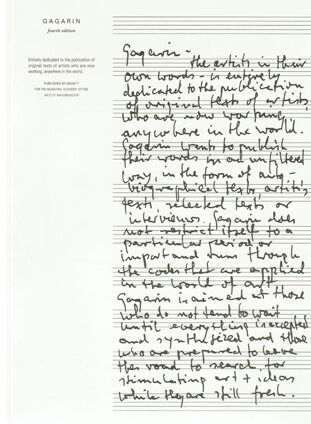 GAGARIN
fourth edition
Entirely dedicated to the publication of
original texts of artists who are now
working, anywhere in the world.
PUBLISHED BY
FOR THE MUNICIPAL ACADEMY OF FINE
ARTS OF
Gagarin -
the artists in their
own words - is entirely
dedicated to the publication
of original texts of artists,
who are now working,
anywhere in the world.
Gagarin wants to publish
their words in an unfiltered
way, in the form of auto-
biographical texts, artists'
texts, selected texts or
interviews. Gagarin does
not restrict itself to a
particular period or
import and runs through
the codes that are applied
in the world of art.
Gagarin is aimed at those
who do not tend to wait
until everything is accepted
and synthesized and those
who are prepared to leave
the road to search for
stimulating art + ideas
while they are still fresh.